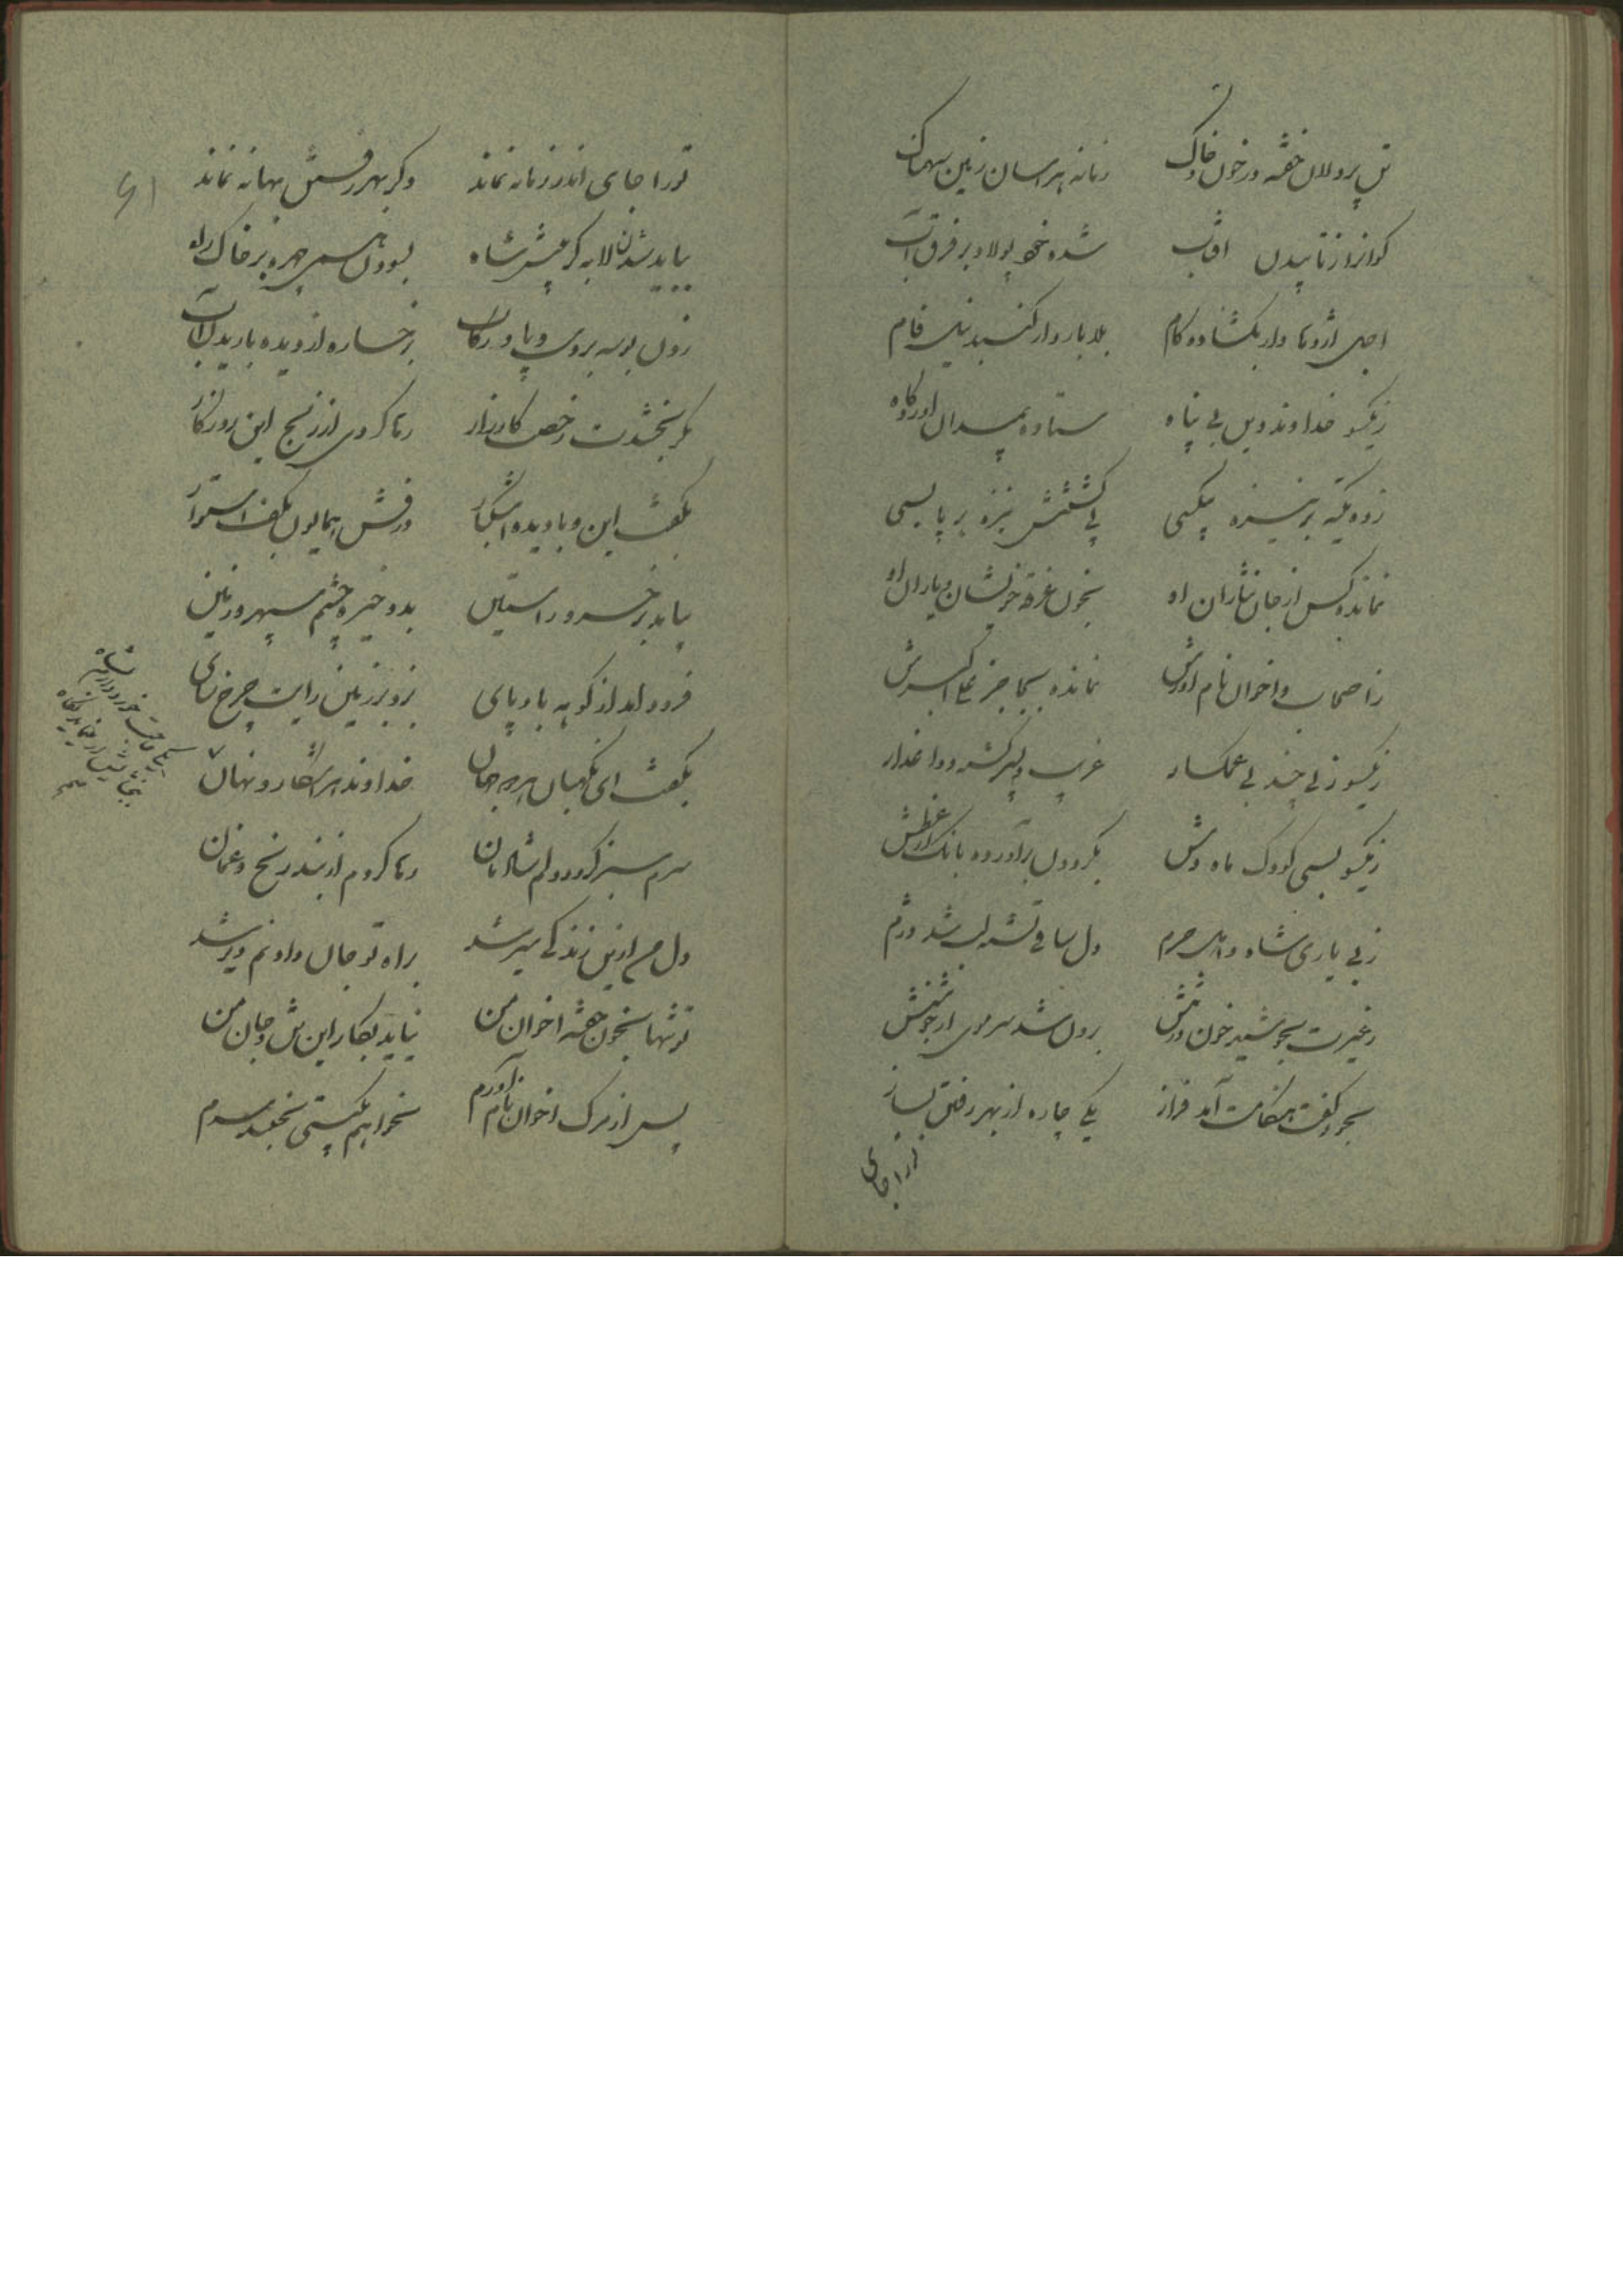 تن پردلان خفته در خون و خاک    زمانه هراسان زمین سهمناک
گوانرا ز تابیدن آفتاب    شده خود پولاد بر فرق آب
اجل اژدها وار بگشاده کام    بلا بار دار گنبد نیل فام
زیکسو خداوند دین بی پناه    ستاده بمیدان آوردگاه
زده تکیه بر نیزه بیکسی    پی کشتنش نیزه بر پا بسی
نمانده کس از جان نثاران او    بخون غرقه خویشان و یاران او
ز اصحاب و اخوان نام آورش    نمانده بجا جز علی اکبرش
زیکسو زنی چند بی غمگسار    غریب و پسر کشته و داغدار
زیکسو بسی کودک ماه وش    بگردون برآورده بانگ از عطش
ز بی یاری شاه و اهل حرم    دل ساقی تشنه لب شد دژم
ز غیرت بجوشید خون در تنش    برون شد سر موی از جوشنش
بخود گفت هنگامت آمد فراز    یکی چاره از بهر رفتن بساز
تو را جای
۶۱
تو را جای اندر زمانه نماند    دگر بهر رفتن بهانه نماند
بباید شدن لابه گر پیش شاه    بسودن همی چهره بر خاک راه
زدن بوسه بر وی و پا و رکاب    برخساره از دیده بارید آب
مگر بخشدت رخصت کارزار    رها گردی از رنج این روزگار
بگفت این و با دیده اشکبار    درفش همایون بکف استوار
بیامد بر خسرو راستین    بدو خیره چشم سپهر و زمین
فرود آمد از کوهه باد پای    بزد بر زمین رایت چرخ سای
بگفت ای نگهبان هر دو جهان    خداوند هر آشکار و نهان
سرم سبز گردد دلم شادمان    رها گردم از بند رنج و غمان
دل من ازین زندگی سیر شد    براه تو جان دادنم دیر شد
تو تنها بخون خفته اخوان من    نیاید بکار این تن و جان من
پس از مرگ اخوان نام آورم    نخواهم بگیتی بجنبد سرم